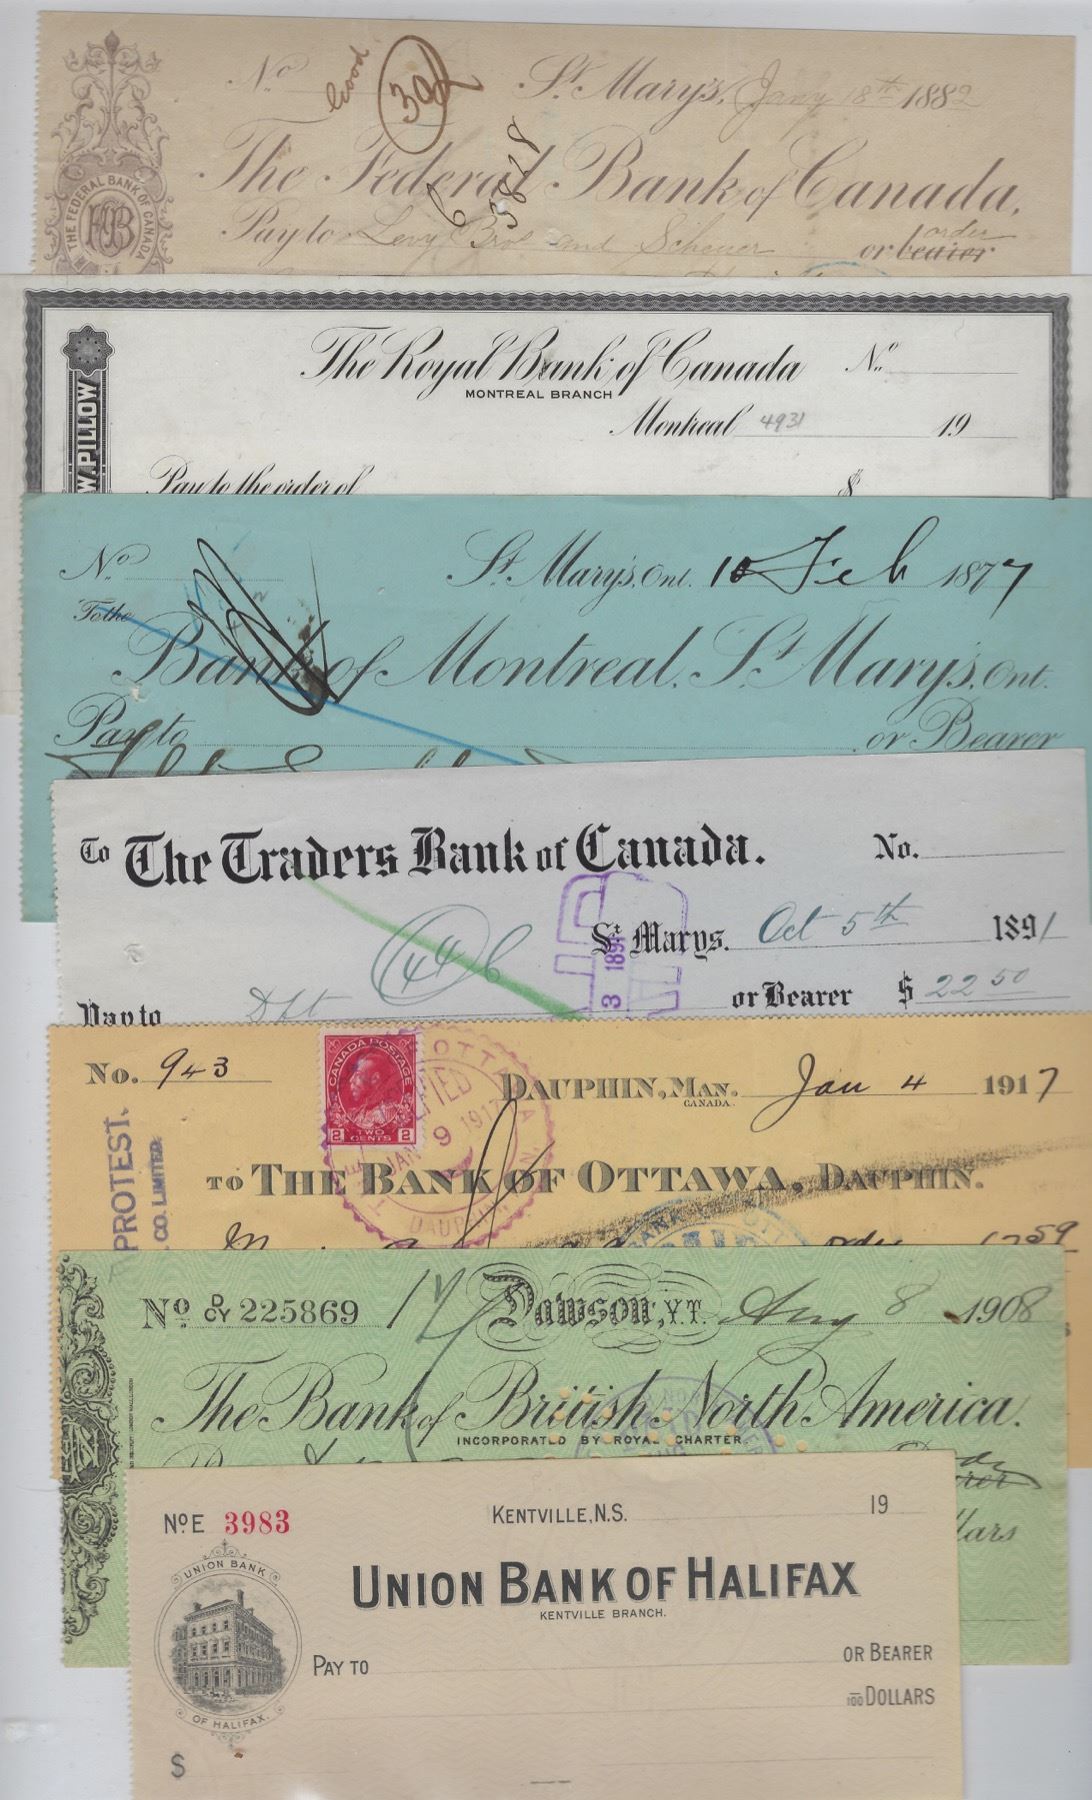 No. Good 300 St. Mary's, Jany 18th 1882
The Federal Bank of Canada,
THE FEDERAL BANK OF CANADA
FB
5828
6
Pay to Levy Bros and Scheuer or bearer order
The Royal Bank of Canada No.
MONTREAL BRANCH
Montreal 4931 19
W. PILLOW
Pay to the order of $
No. St. Mary's, Ont. 10 Feb 1877
To the
Bank of Montreal, St. Mary's, Ont.
Pay to or Bearer
To The Traders Bank of Canada. No.
446 St. Marys. Oct 5th 1891
3 189
Pay to Dft or Bearer $ 22 50
No. 943 DAUPHIN, MAN. Jan 4 1917
CANADA.
CANADA POSTAGE
2 TWO CENTS 2
OTTAWA
JAN 9 1917
DAUPHIN
PROTEST.
CO. LIMITED.
TO THE BANK OF OTTAWA, DAUPHIN.
order 59
No. D/CY 225869 Dawson, Y.T. Aug 8 1908
The Bank of British North America.
INCORPORATED BY ROYAL CHARTER
No. E 3983 KENTVILLE, N.S. 19
UNION BANK OF HALIFAX
KENTVILLE BRANCH.
UNION BANK
OF HALIFAX.
PAY TO OR BEARER
/100 DOLLARS
$